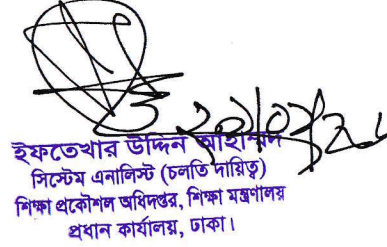 ইফতেখার উদ্দিন আহাম্মদ
সিস্টেম এনালিস্ট (চলতি দায়িত্ব)
শিক্ষা প্রকৌশল অধিদপ্তর, শিক্ষা মন্ত্রণালয়
প্রধান কার্যালয়, ঢাকা।